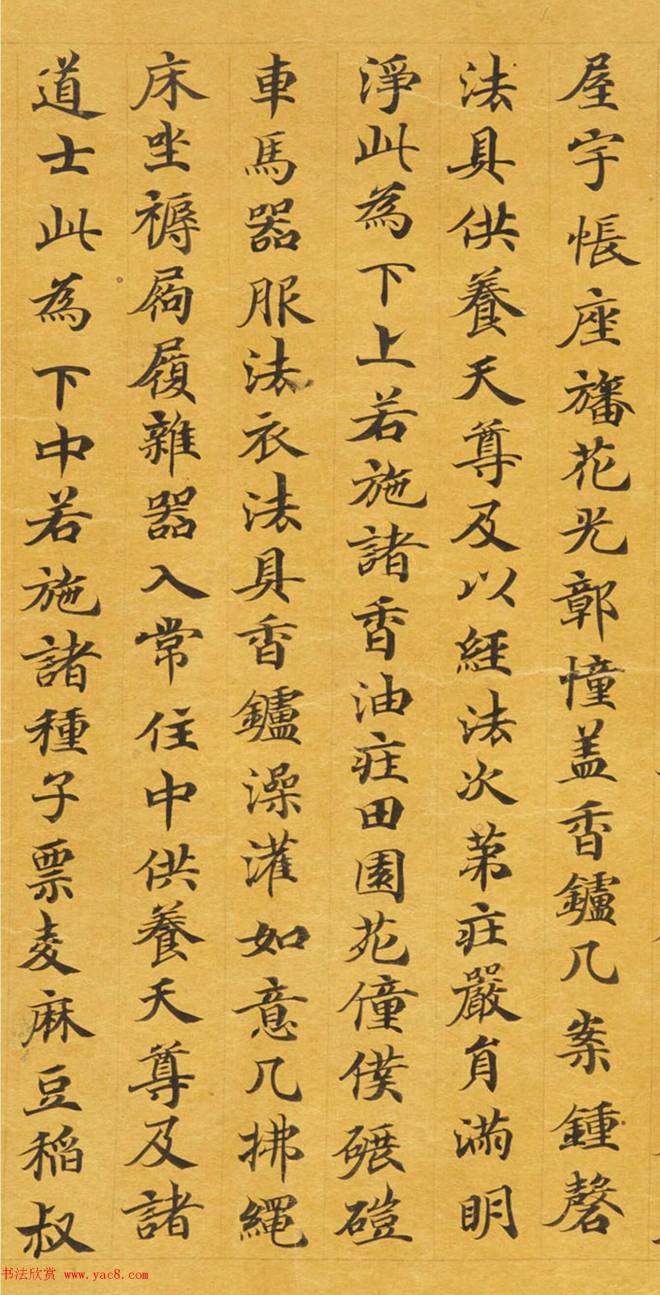 屋宇帳座旛花光鄣幢盖香鑪几案鍾磬
法具供養天尊及以經法次苐疰嚴貟滿明
淨此為下上若施諸香油疰田園苑僮僕碾磑
車馬器服法衣法具香鑪澡灌如意几拂繩
床坐褥屩履雜器入常住中供養天尊及諸
道士此為下中若施諸種子粟麦麻豆稻叔
书法欣赏 www.yac8.com